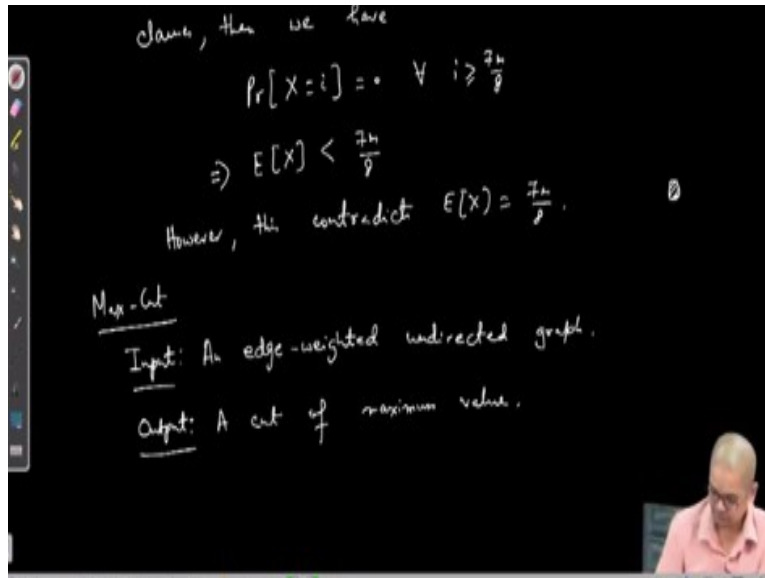 clauses, then we have
Pr[X=i]=0 ∀ i≥7n/8
⇒ E[X] < 7n/8
However, this contradicts E[X] = 7n/8.
Max-Cut
Input: An edge-weighted undirected graph.
Output: A cut of maximum value.